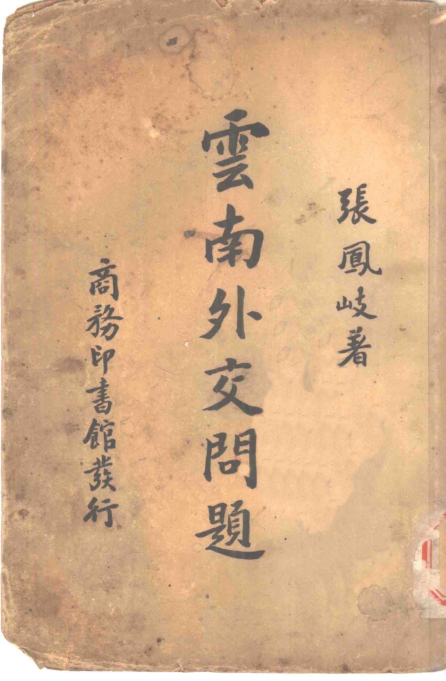 張鳳岐著
雲南外交問題
商務印書館發行